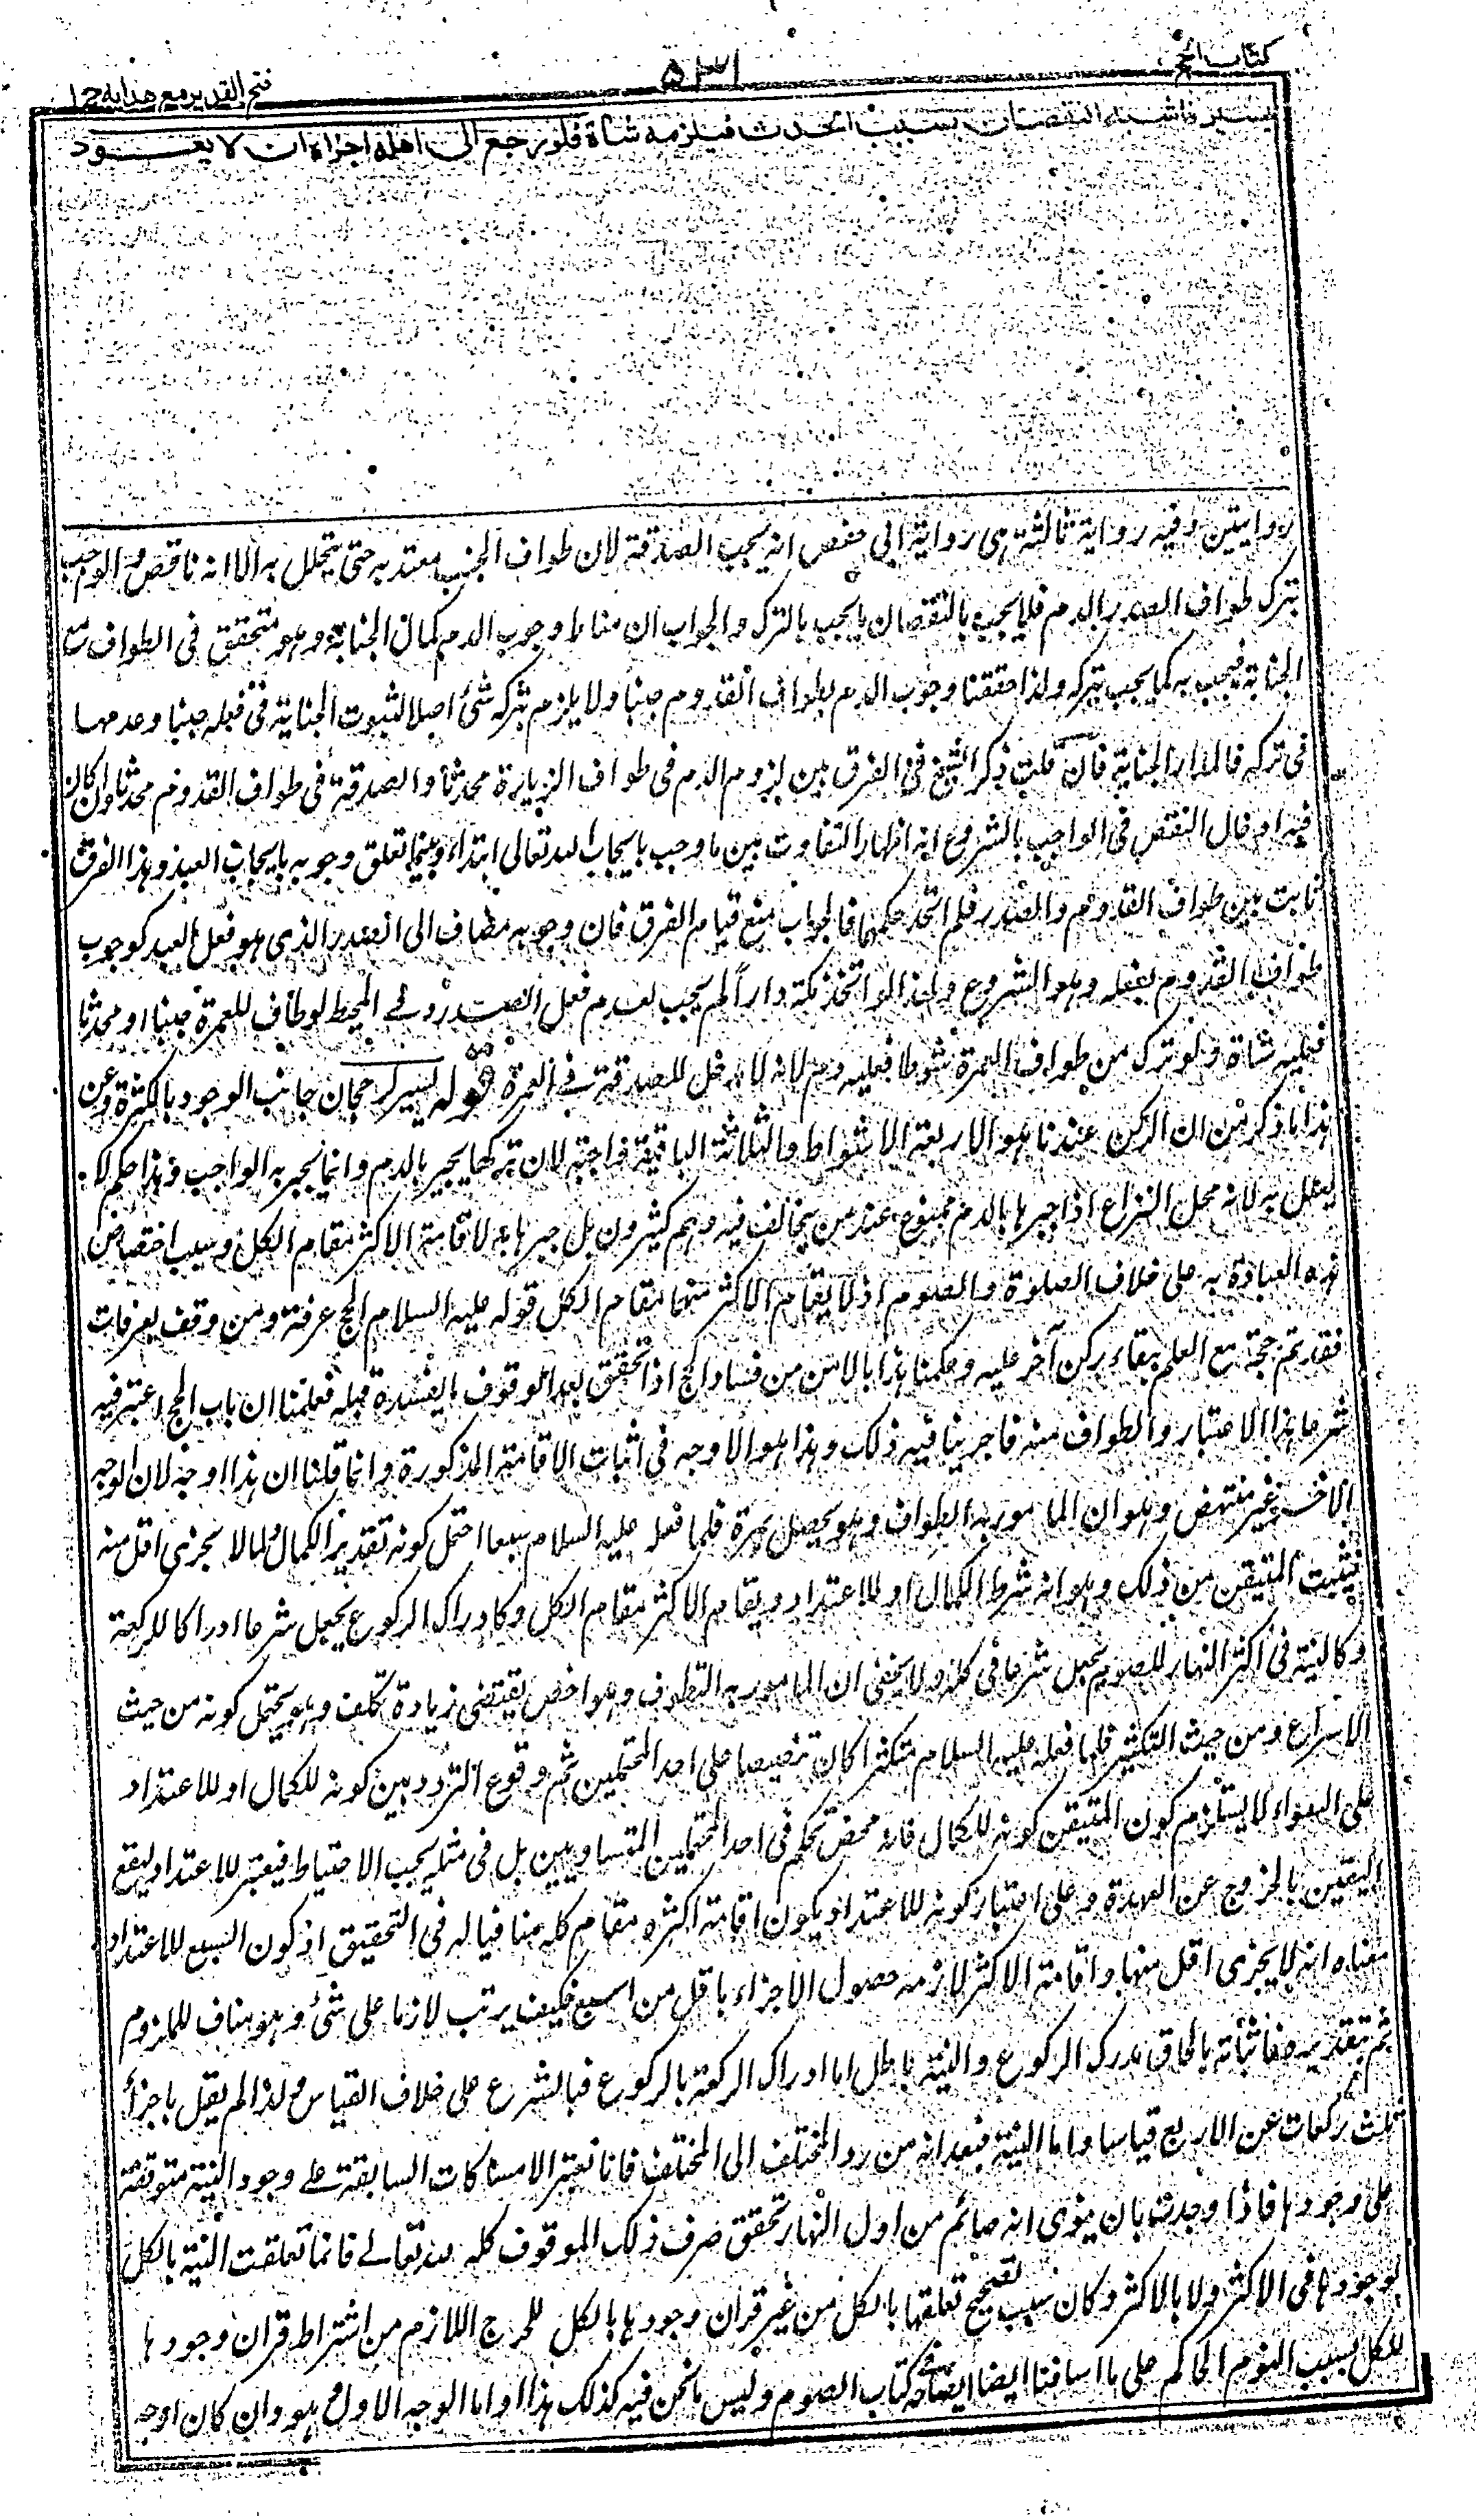 كتاب الحج
٥٣١
فتح القدير مع هدايه ج ١
يسير فاشبه النقصان بسبب الحدث فيلزمه شاة فلو رجع الى اهله اجزاه ان لا يعود
روايتين وفيه رواية ثالثة هى رواية ابى حفص انه يجب الصدقة لان طواف الجنب معتد به حتى يتحلل به الا انه ناقص والواجب
بترك طواف الصدر الدم فلا يجب بالنقصان ما يجب بالترك والجواب ان مناط وجوب الدم كمال الجناية وهو متحقق فى الطواف مع
الجنابة فيجب به كما يجب بتركه ولذا حققنا وجوب الدم بطواف القدوم جنبا ولا يلزم بتركه شئ اصلا لثبوت الجناية فى فعله جنبا وعدمها
فى تركه فالمدار الجناية فان قلت ذكر الشيخ فى الفرق بين لزوم الدم فى طواف الزيارة محدثا والصدقة فى طواف القدوم محدثا وان كان
فيه ادخال النقص فى الواجب بالشروع انه اظهار التفاوت بين ما وجب بايجاب الله تعالى ابتداء وبينما تعلق وجوبه بايجاب العبد وهذا الفرق
ثابت بين طواف القدوم والصدر فلم اتحد حكمهما فالجواب منع قيام الفرق فان وجوبه مضاف الى الصدر الذى هو فعل العبد كوجوب
طواف القدوم بفعله وهو الشروع ولهذا لو اتخذ مكة دارا لم يجب لعدم فعل الصدر وفے المحيط لو طاف للعمرة جنبا او محدثا
فعليه شاة ولو ترك من طواف العمرة شوطا فعليه دم لانه لا مدخل للصدقة فے العمرة قوله يسير لرجحان جانب الوجود بالكثرة وعن
هذا ما ذكر من ان الركن عندنا هو الاربعة الاشواط والثلاثة الباقية واجبة لان تركها يجبر بالدم وانما يجبر به الواجب وهذا حكم لا
يعلل به لانه محل النزاع اذ اجبرها بالدم ممنوع عند من يخالف فيه وهم كثيرون بل جبرها به لاقامة الاكثر مقام الكل وسبب اختصاص
هذه العبادة به على خلاف الصلوة والصوم اذ لا يقام الاكثر منهما مقام الكل قوله عليه السلام الحج عرفة ومن وقف بعرفات
فقد تم حجه مع العلم ببقاء ركن آخر عليه وحكمنا بهذا بالامن من فساد الحج اذا تحقق بعد الوقوف ما يفسده قبله فعلمنا ان باب الحج اعتبر فيه
شرعا هذا الاعتبار والطواف منه فاجرينا فيه ذلك وهذا هو الاوجه فى اثبات الاقامة المذكورة وانما قلنا ان هذا اوجه لان الوجه
الآخر غير منتهض وهو ان المامور به الطواف وهو يحصل بمرة فلما فعله عليه السلام سبعا احتمل كونه تقدير الكمال ولما لا يجزى اقل منه
فيثبت المتيقن من ذلك وهو انه شرط الكمال او للاعتداد ويقام الاكثر مقام الكل وكادراك الركوع يجعل شرعا ادراكا للركعة
وكالنية فى اكثر النهار للصوم يجعل شرعا فى كله ولا يخفى ان المامور به التطوف وهو اخص يقتضى زيادة تكلف وهو يحتمل كونه من حيث
الاسراع ومن حيث التكثير فلما فعله عليه السلام متكثرا كان تنصيصا على احد المحتملين ثم وقوع التردد بين كونه للكمال او للاعتداد
على السواء لا يستلزم كون المتيقن كونه للكمال فانه محض تحكم فى احد المحتملين المتساويين بل فى مثله يجب الاحتياط فيعتبر للاعتداد ليقع
اليقين بالخروج عن العهدة وعلى اعتبار كونه للاعتداد يكون اقامة اكثره مقام كله منافيا له فى التحقيق اذ كون السبع للاعتداد
معناه انه لا يجزى اقل منها واقامة الاكثر لازمه حصول الاجزاء باقل من السبع فكيف يرتب لازما على شئ وهو مناف للملزوم
ثم تقديره فاثباته بالحاق مدرك الركوع والنية باطل اما ادراك الركعة بالركوع فبالشرع على خلاف القياس ولذا لم يقل باجزاء
ثلث ركعات عن الاربع قياسا واما النية فبعد انه من رد المختلف الى المختلف فانا نعتبر الامساكات السابقة على وجود النية متوقفة
على وجودها فاذا وجدت بان ينوى انه صائم من اول النهار تحقق صرف ذلك الموقوف كله لله تعالى فانما تعلقت النية بالكل
لوجودها فى الاكثر ولا بالاكثر وكان سبب تصحيح تعلقها بالكل من غير قران وجودها بالكل للحرج اللازم من اشتراط قران وجودها
للكل بسبب النوم الحاكم على ما اسلفنا ايضا ايضاحه فے كتاب الصوم وليس ما نحن فيه كذلك هذا واما الوجه الاول فهو وان كان اوجه